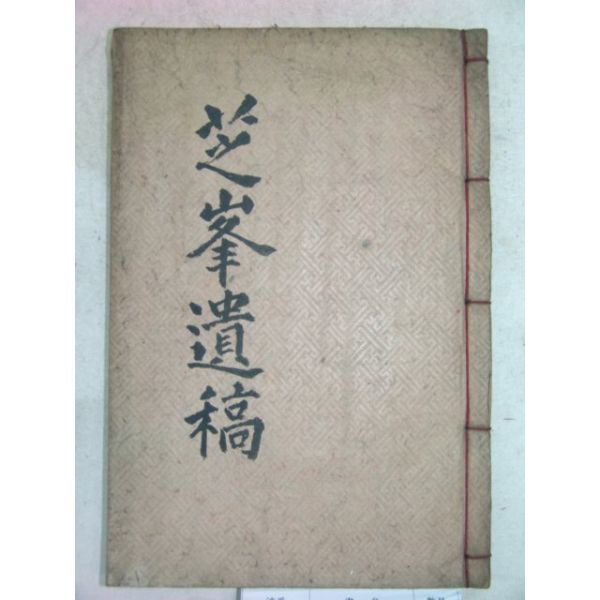 芝峯遺稿